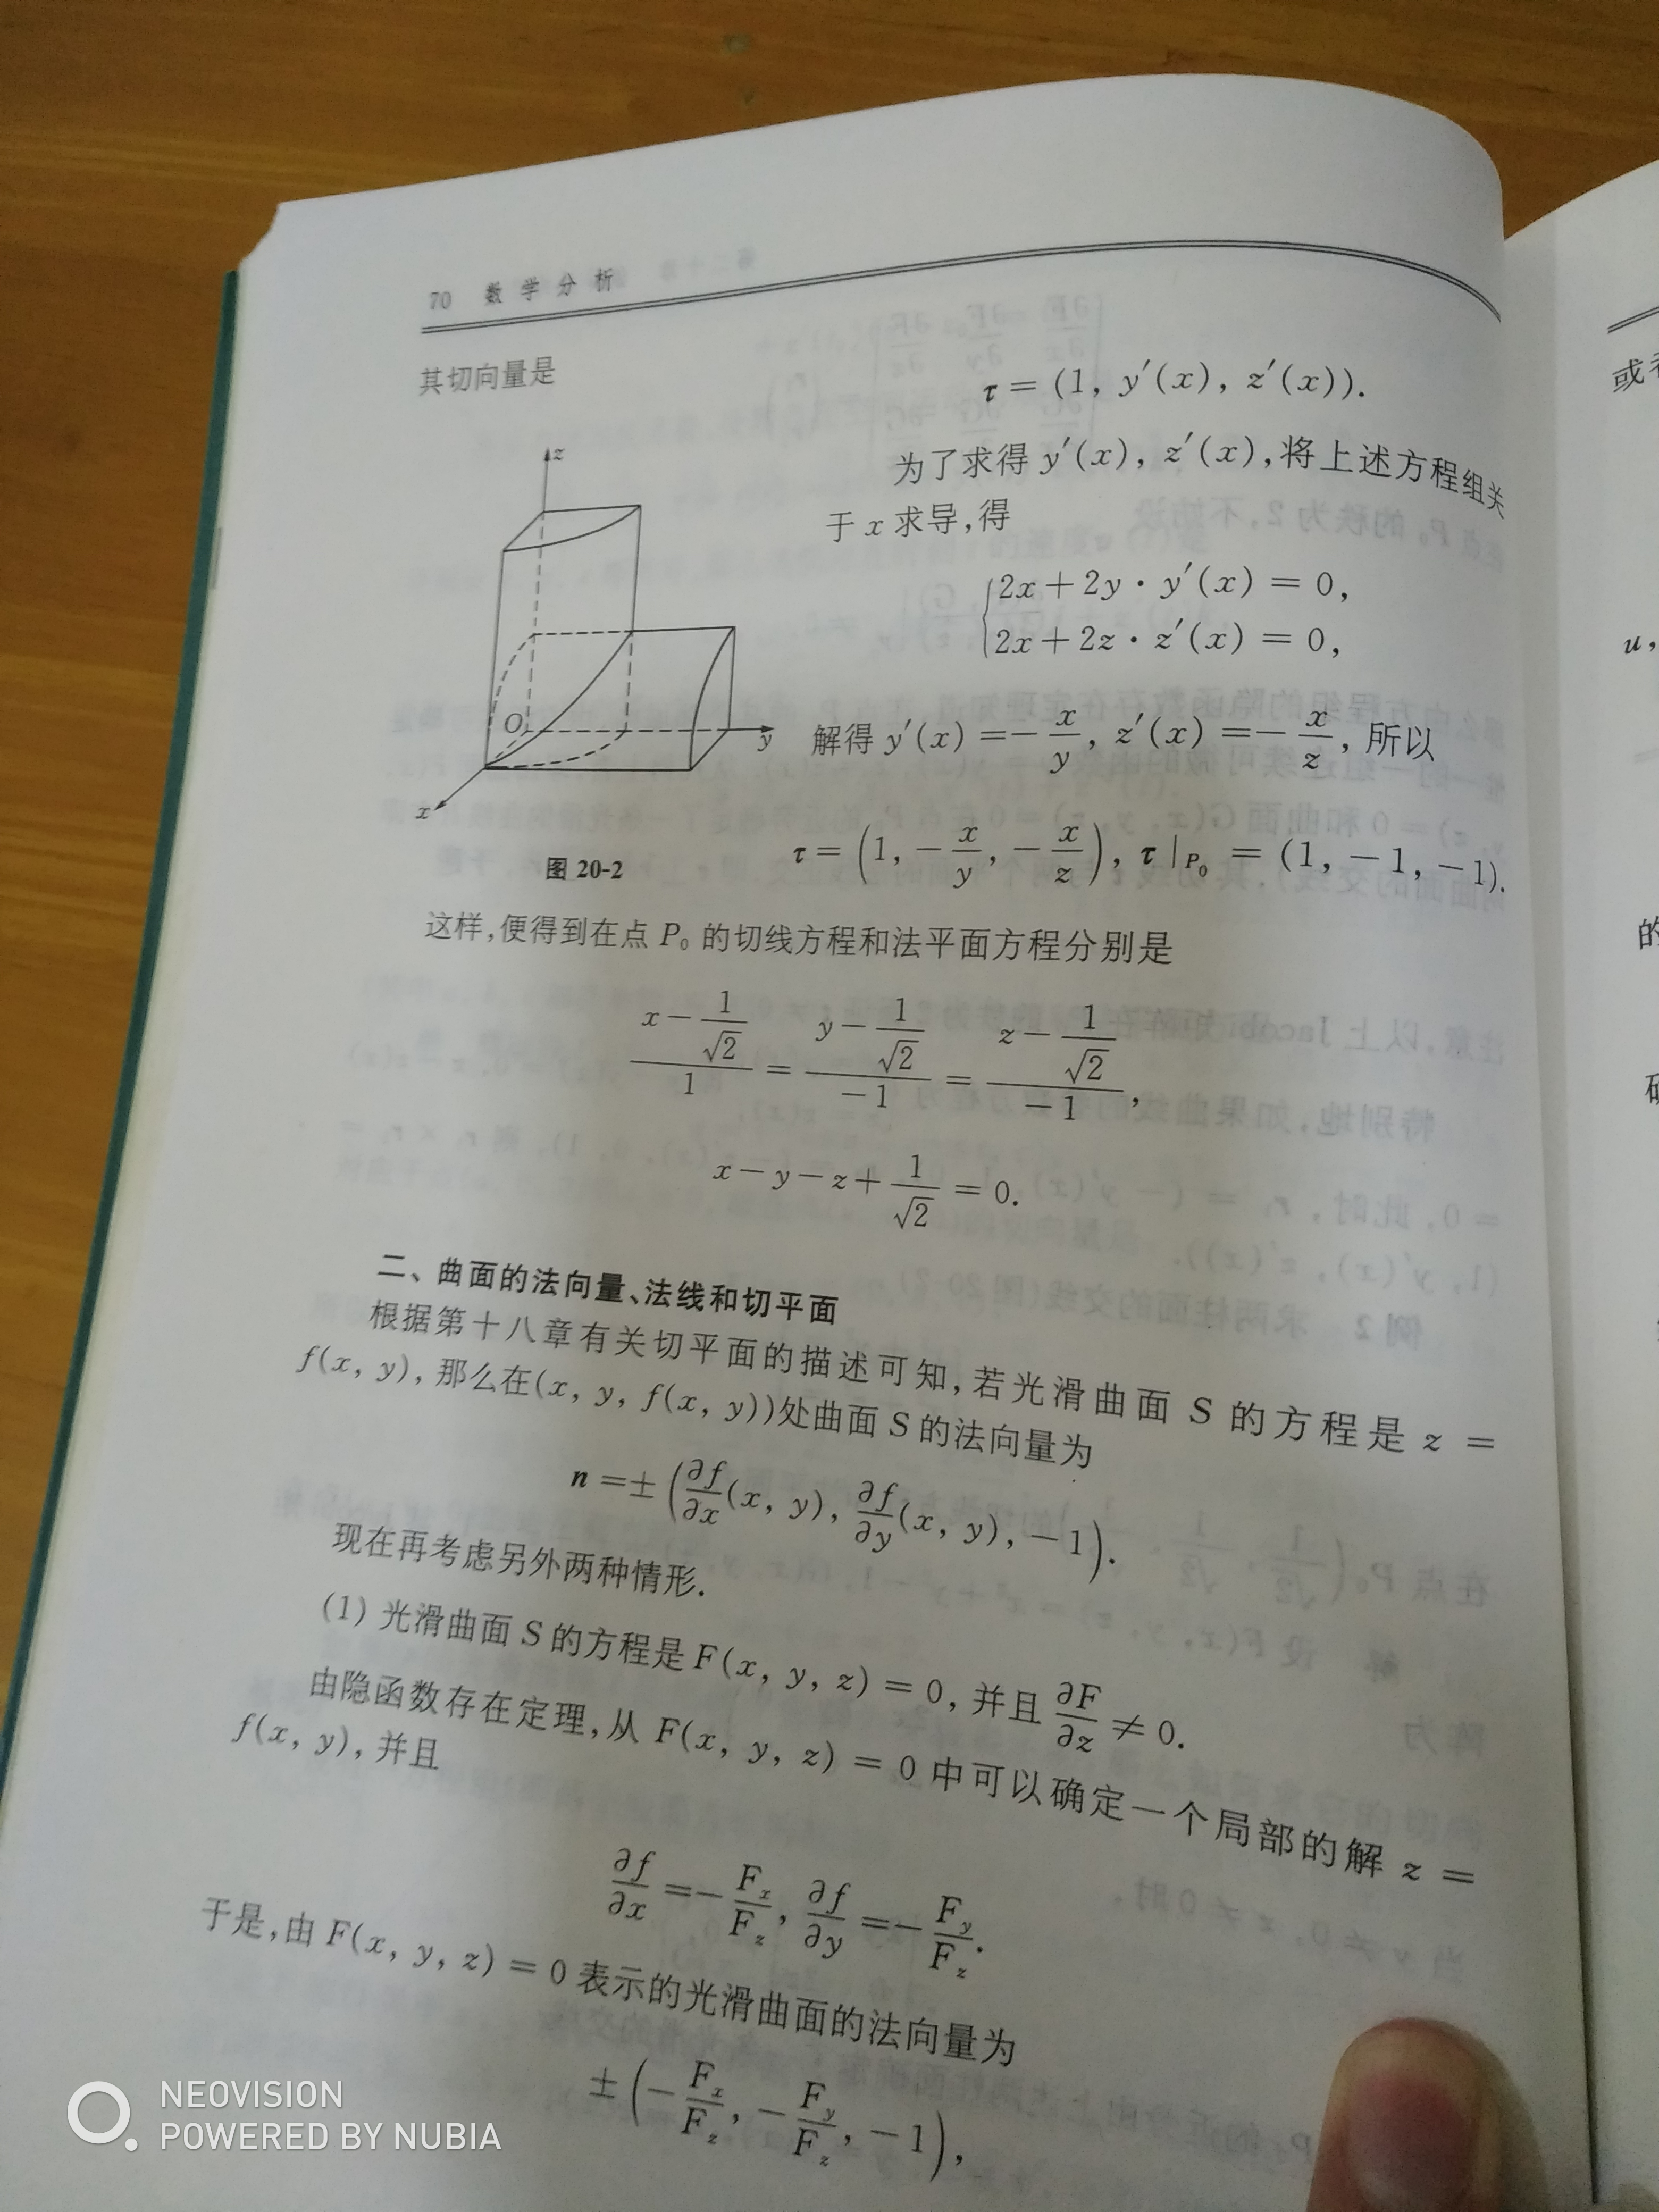 70 数学分析
其切向量是
τ = (1, y′(x), z′(x)).
为了求得 y′(x), z′(x),将上述方程组关
于 x 求导,得
2x+2y·y′(x) = 0,
2x+2z·z′(x) = 0,
解得 y′(x) =−x/y, z′(x) =−x/z, 所以
τ = (1, −x/y, −x/z), τ|P₀ = (1, −1, −1).
z
O
y
x
图 20-2
这样,便得到在点 P₀ 的切线方程和法平面方程分别是
(x−1/√2)/1 = (y−1/√2)/−1 = (z−1/√2)/−1,
x−y−z+1/√2 = 0.
二、曲面的法向量、法线和切平面
根据第十八章有关切平面的描述可知,若光滑曲面 S 的方程是 z =
f(x, y), 那么在(x, y, f(x, y))处曲面 S 的法向量为
n =± (∂f/∂x(x, y), ∂f/∂y(x, y), −1).
现在再考虑另外两种情形.
(1) 光滑曲面 S 的方程是 F(x, y, z) = 0, 并且 ∂F/∂z ≠ 0.
由隐函数存在定理,从 F(x, y, z) = 0 中可以确定一个局部的解 z =
f(x, y), 并且
∂f/∂x =−Fx/Fz, ∂f/∂y =−Fy/Fz.
于是,由 F(x, y, z) = 0 表示的光滑曲面的法向量为
± (−Fx/Fz, −Fy/Fz, −1),
u,
的
NEOVISION
POWERED BY NUBIA